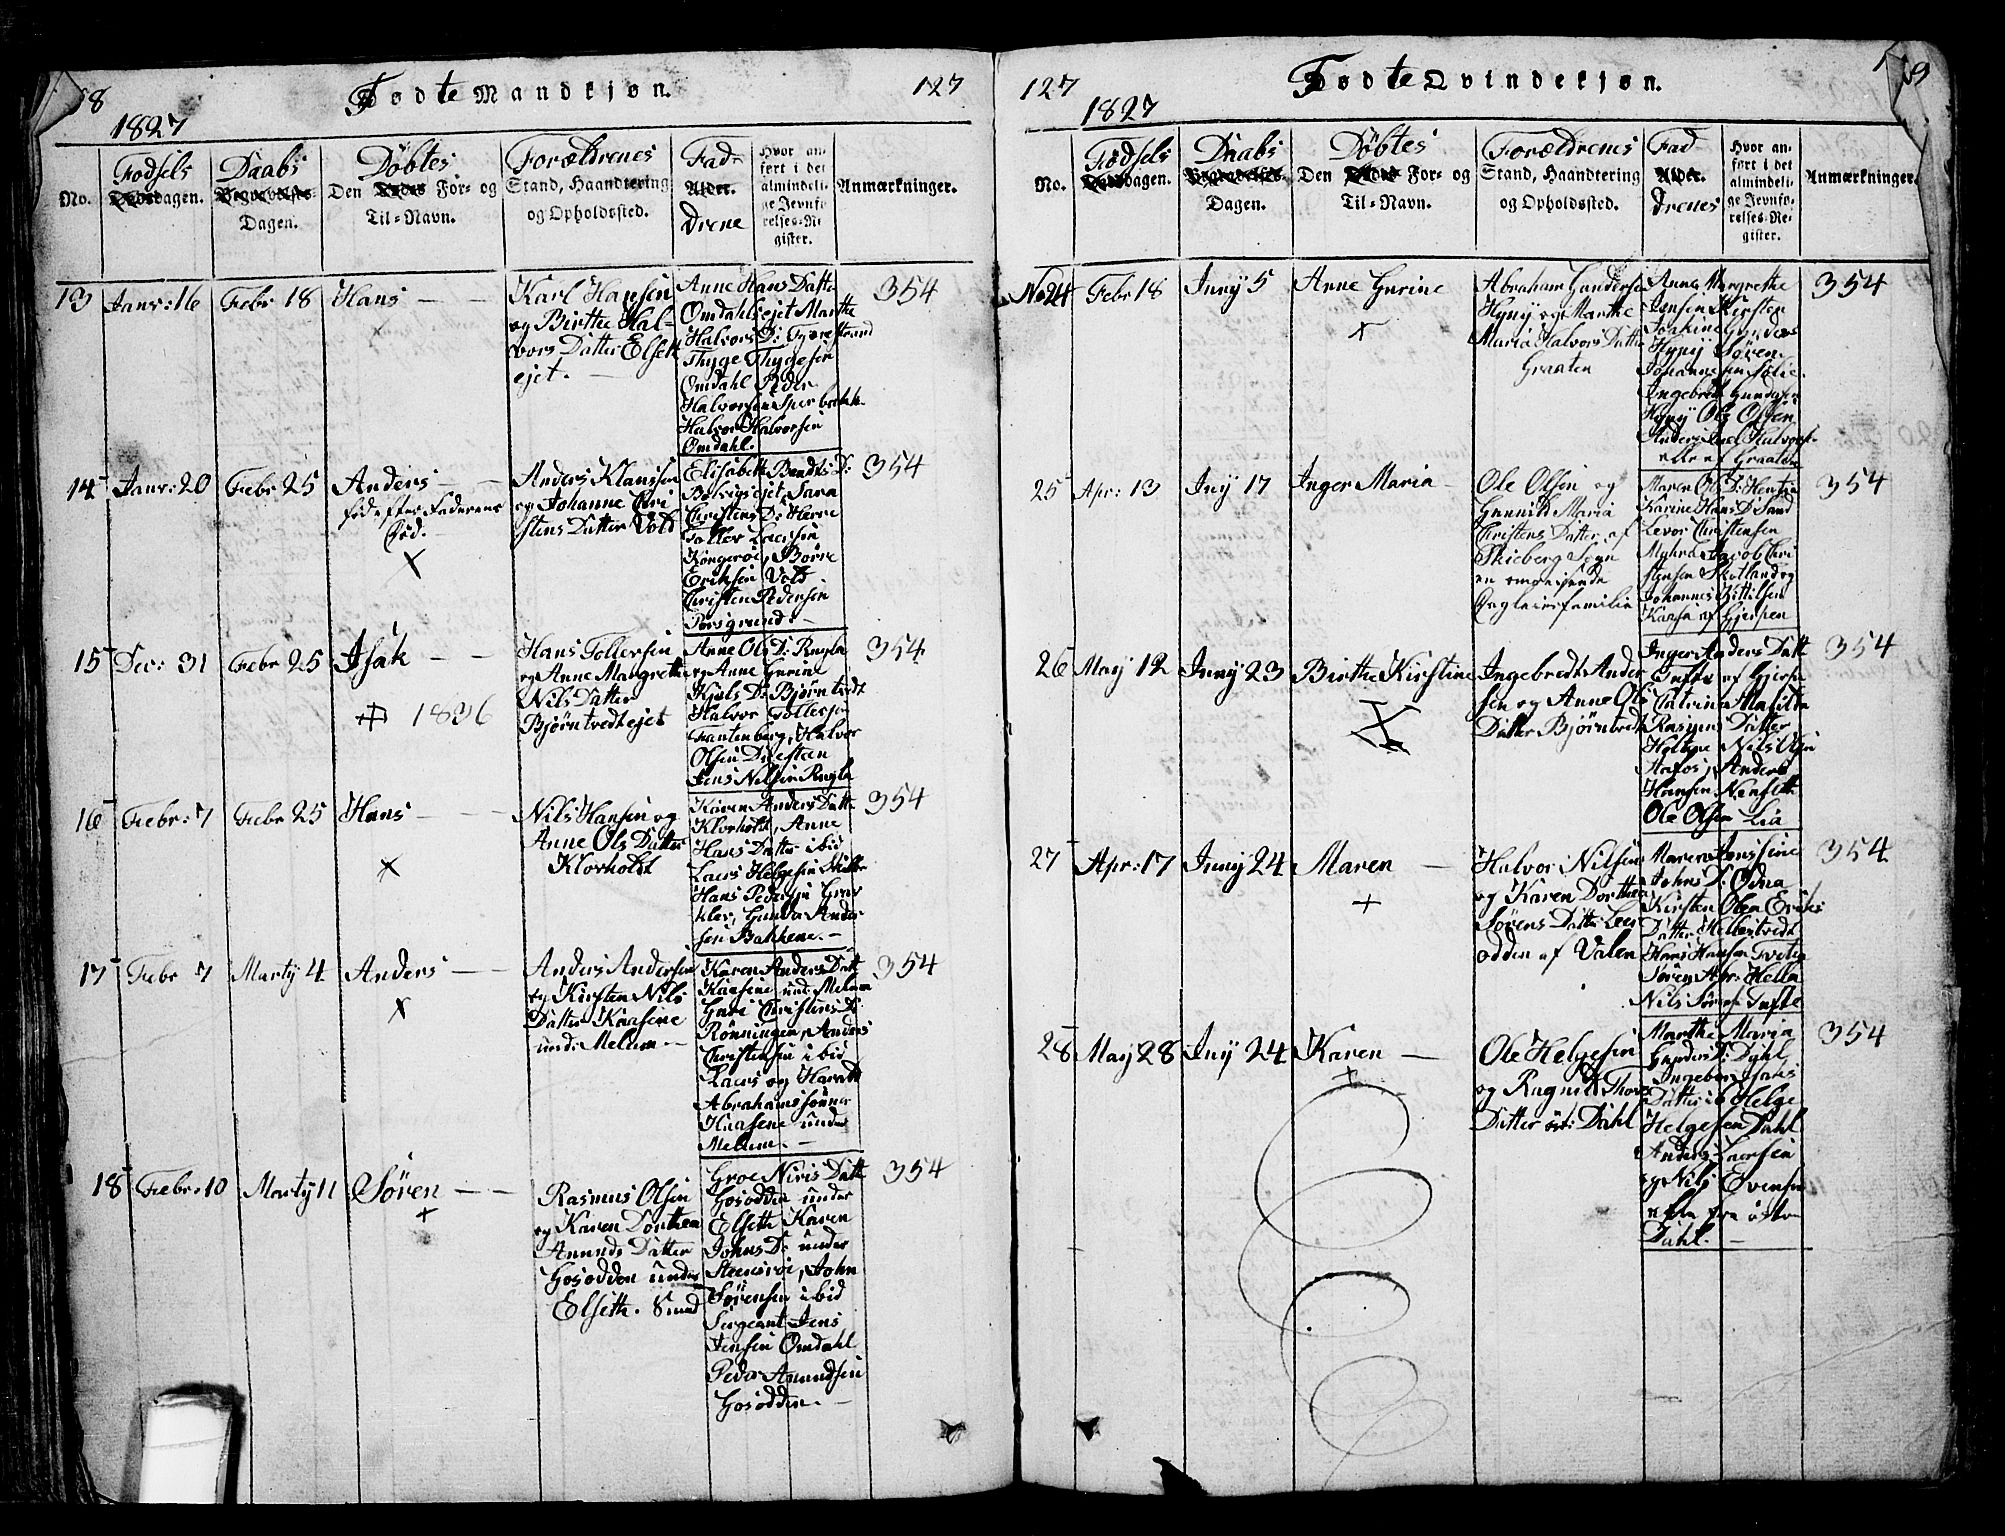 18
Fødte Mandkjøn.
127
1827
No.
Fødsels
Dødsdagen.
Daabs
Begravelses-
Dagen.
Døbtes
Den Dødes For- og
Til-Navn.
Forældrenes
Stand, Haandtering
og Opholdssted.
Fad-
Alder.
drene
Hvor an-
ført i det
almindeli-
ge Jevnfø-
relses-Re-
gister.
Anmærkninger.
13 Janr: 16 Febr 18 Hans
Karl Hansen
og Birthe Hal-
vors Datter Elseth
ejet.
Anne Hans Datte
Omdahlsejet Marthe
Halvors D: Tyærestrand
Thyge Thygesen
Omdahl Peder
Halvorsen
Halvor Halvorsen
Omdahl.
354
14 Janr: 20 Febr 25 Anders
fød efter Faderens
Død.
Anders Klausen
og Johanne Chri
stens Datter Vold
Elisabeth Bendts D:
Bolvigsejet, Sara
Christens D: Herre
Toller Laersen
Kongerøe, Børre
Eriksen Vold
Christen Pedersen
Porsgrund.
354
15 Decr: 31 Febr 25 Isak
1836
Hans Tollersen
og Anne Margrethe
Nils Datter
Bjørntvedtejet
Anne Ols D: Rugla
og Anne Gurine
Kjels D: Bjørntvedt
Halvor Tollersen
Frantenberg, Halvor
Olsen
Jens Nilsen Rugla
354
16 Febr: 7 Febr 25 Hans
Nils Hansen og
Anne Ols Datter
Klovholdt
Karen Anders Datte
Klovholdt, Anne
Hans Datter ibid
Laers Helgesen
Hans Pedersen Grav
klev, Gunder Ander
sen Bakkene.
354
17 Febr 7 Marty 4 Anders
Anders Andersen
og Kirsten Nils
Datter Kaasene
und: Melum
Karen Anders Datt
Kaasene und Melum
Guri Christens D:
Rønningen, Anders
Christensen ibid
Laers og Haraldt
Abrahamssønner
Kaasene under
Melum.
354
18 Febr: 10 Marty 11 Søren
Rasmus Olsen
og Karen Dorthea
Amunds Datter
Gosodden under
Elseth.
Groe Niris Datte
Gosodden under
Elseth Karen
Johns D: under
Steensrøe, John
Sørensen ibid
Sergeant Jens
Jensen Omdahl
Peder Amundsen
Gosodden.
354
127
Fødte Qvindekjøn.
1827
No.
Fødsels
Dødsdagen.
Daabs
Begravelses-
Dagen.
Døbtes
Den Dødes For- og
Til-Navn.
Forældrenes
Stand, Haandtering
og Opholdssted.
Fad
Alder.
drenes
Hvor an-
ført i det
almindeli-
ge Jevnfø-
relses-Re-
gister.
Anmærkninger.
No 24 Febr 18 Juny 5 Anne Gurine
Abraham Gundersen
Hyny og Marthe
Maria Halvors Datter
Graaten
Anne Margrethe
Jensen Kirsten
Joakine Gunders
Hynij Søren
Johannesen Folie
Ingebredt Gundersen
Hynij Ole Olsen
Anders Halvors
alle af Graaten
354
25 Apr: 13 Juny 17 Inger Maria
Ole Olsen og
Gunnild Maria
Christens Datter af
Skieberg Sogn
en omreisende
familie
Maren Ols D:
Karine Hans D: Sand
Levor Christensen
Myhra Jacob Chri
stensen Skotland og
Johannes Kittilsen
Kaasa af Gjerpen
354
26 May 12 Juny 23 Birthe Kirstine
Ingebredt Ander
sen og Anne Ols
Datter Bjørntvedt
Inger Anders Datt
Tufte af Gjerpen
Catrina Matilda
Rasmus Datter
Nils Olsen
Hafos, Anders
Hansen Nenseth
Ole Olsen Lia
354
27 Apr: 17 Juny 24 Maren
Halvor Nilsen
og Karen Dorthea
Sørens Datter Leer
odden af Valen
Maren Jensine
Johns D: Ødna
Kirsten Olea Eriks
Datter Hellestvedt
Hans Hansen Tveten
Søren Abr: Hella
Nils Sørens Tufte
354
28 May 28 Juny 24 Karen
Ole Helgesen
og Ragnild Thors
Datter øst: Dahl
Marthe Maria
Gunders D: Dahl
Ingeborg
Datter ib Helge
Helgesen Dahl
Anders Laersen
og Nils Evensen
alle fra østre
Dahl.
354